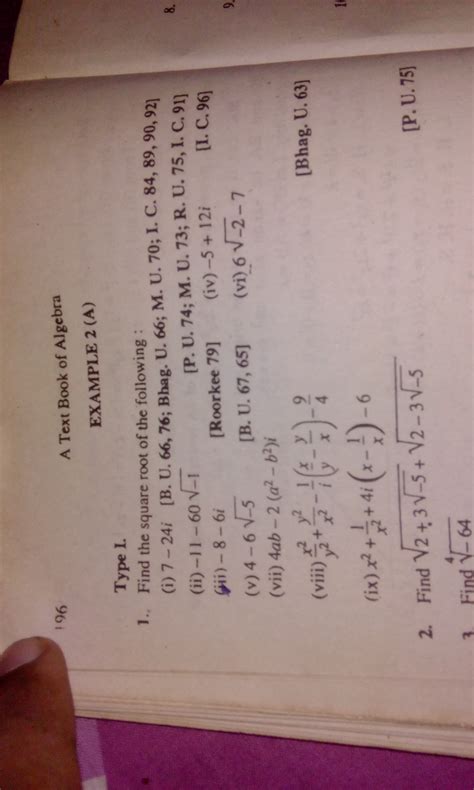 8.
9.
196
A Text Book of Algebra
EXAMPLE 2 (A)
Type I.
1. Find the square root of the following :
(i) 7 – 24i [B. U. 66, 76; Bhag. U. 66; M. U. 70; I. C. 84, 89, 90, 92]
(ii) –11 – 60 √–1 [P. U. 74; M. U. 73; R. U. 75, I. C. 91]
(iii) – 8 – 6i [Roorkee 79] (iv) –5 + 12i [I. C. 96]
(v) 4 – 6 √–5 [B. U. 67, 65] (vi) 6 √–2 – 7
(vii) 4ab – 2 (a² – b²)i
(viii) x²/y² + y²/x² – 1/i (x/y – y/x) – 9/4 [Bhag. U. 63]
(ix) x² + 1/x² + 4i (x – 1/x) – 6
2. Find √(2 + 3 √–5) + √(2 – 3 √–5) [P. U. 75]
3. Find ⁴√–64